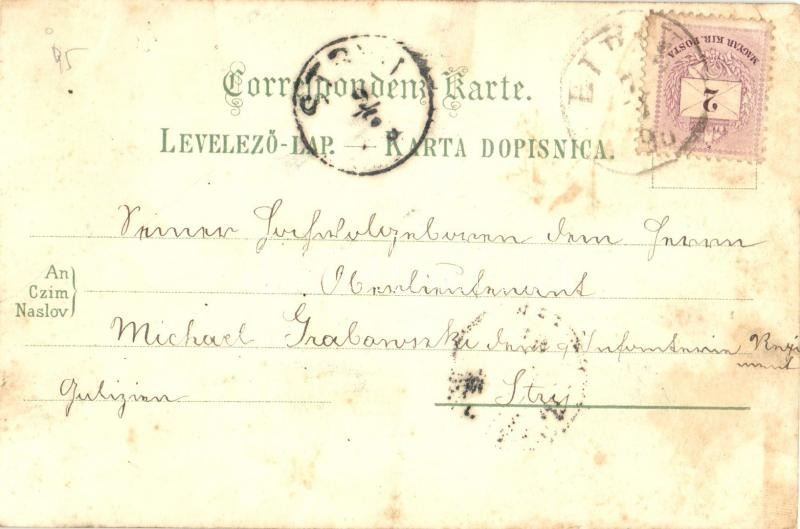 95
MAGYAR KIR. POSTA
2
STRYJ
Correspondenz-Karte.
LEVELEZŐ-LAP. — KARTA DOPISNICA.
Seiner Hochwolgeboren dem Herrn
An
Czim
Naslov
Oberlieutenant
Michael Grabowszki des 9 Infanterie Regi
ment
Galizien
Stryj